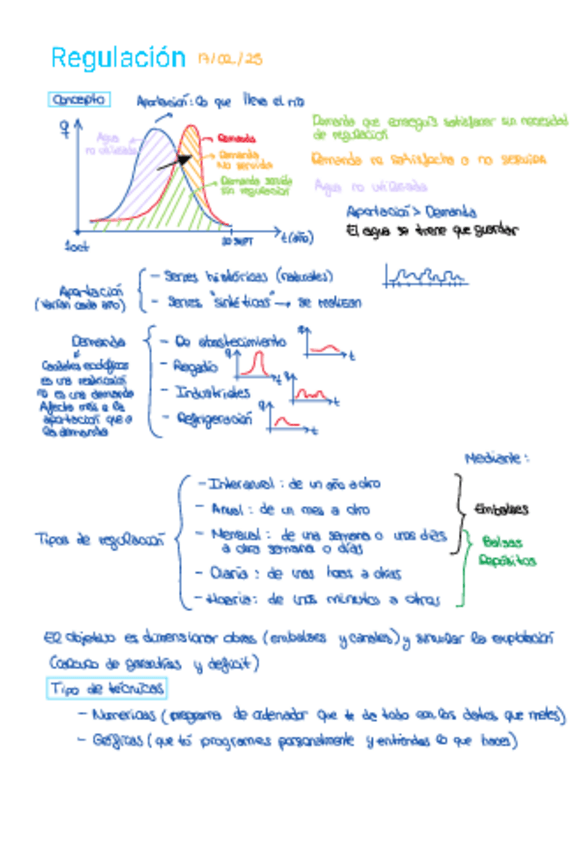 Regulación 17/02/25
Concepto
Aportación: lo que lleva el río
Q
Agua
no utilizada
Demanda
Demanda
No servida
Demanda servida
sin regulación
1 oct
30 SEPT
t (año)
Demanda que conseguís satisfacer sin necesidad
de regulación
Demanda no satisfecha o no servida
Agua no utilizada
Aportación > Demanda
El agua se tiene que guardar
Aportación
(Varían cada año)
- Series históricas (naturales)
- Series "sintéticas" → se realizan
Demanda
Caudales ecológicos
es una restricción
no es una demanda
Afecta más a la
aportación que a
la demanda
- De abastecimiento
- Regadío
- Industriales
- Refrigeración
t
Q
t
Q
t
Q
t
Mediante:
Tipos de regulación
- Interanual: de un año a otro
- Anual: de un mes a otro
- Mensual: de una semana o unos días
a otra semana o días
- Diaria: de unas horas a otras
- Horaria: de unos minutos a otros
Embalses
Balsas
Depósitos
El objetivo es dimensionar obras (embalses y canales) y simular la explotación
(cálculo de garantías y déficit)
Tipo de técnicas
- Numéricas (programa de ordenador que te da todo con los datos que metes)
- Gráficas (que tú programas personalmente y entiendes lo que haces)